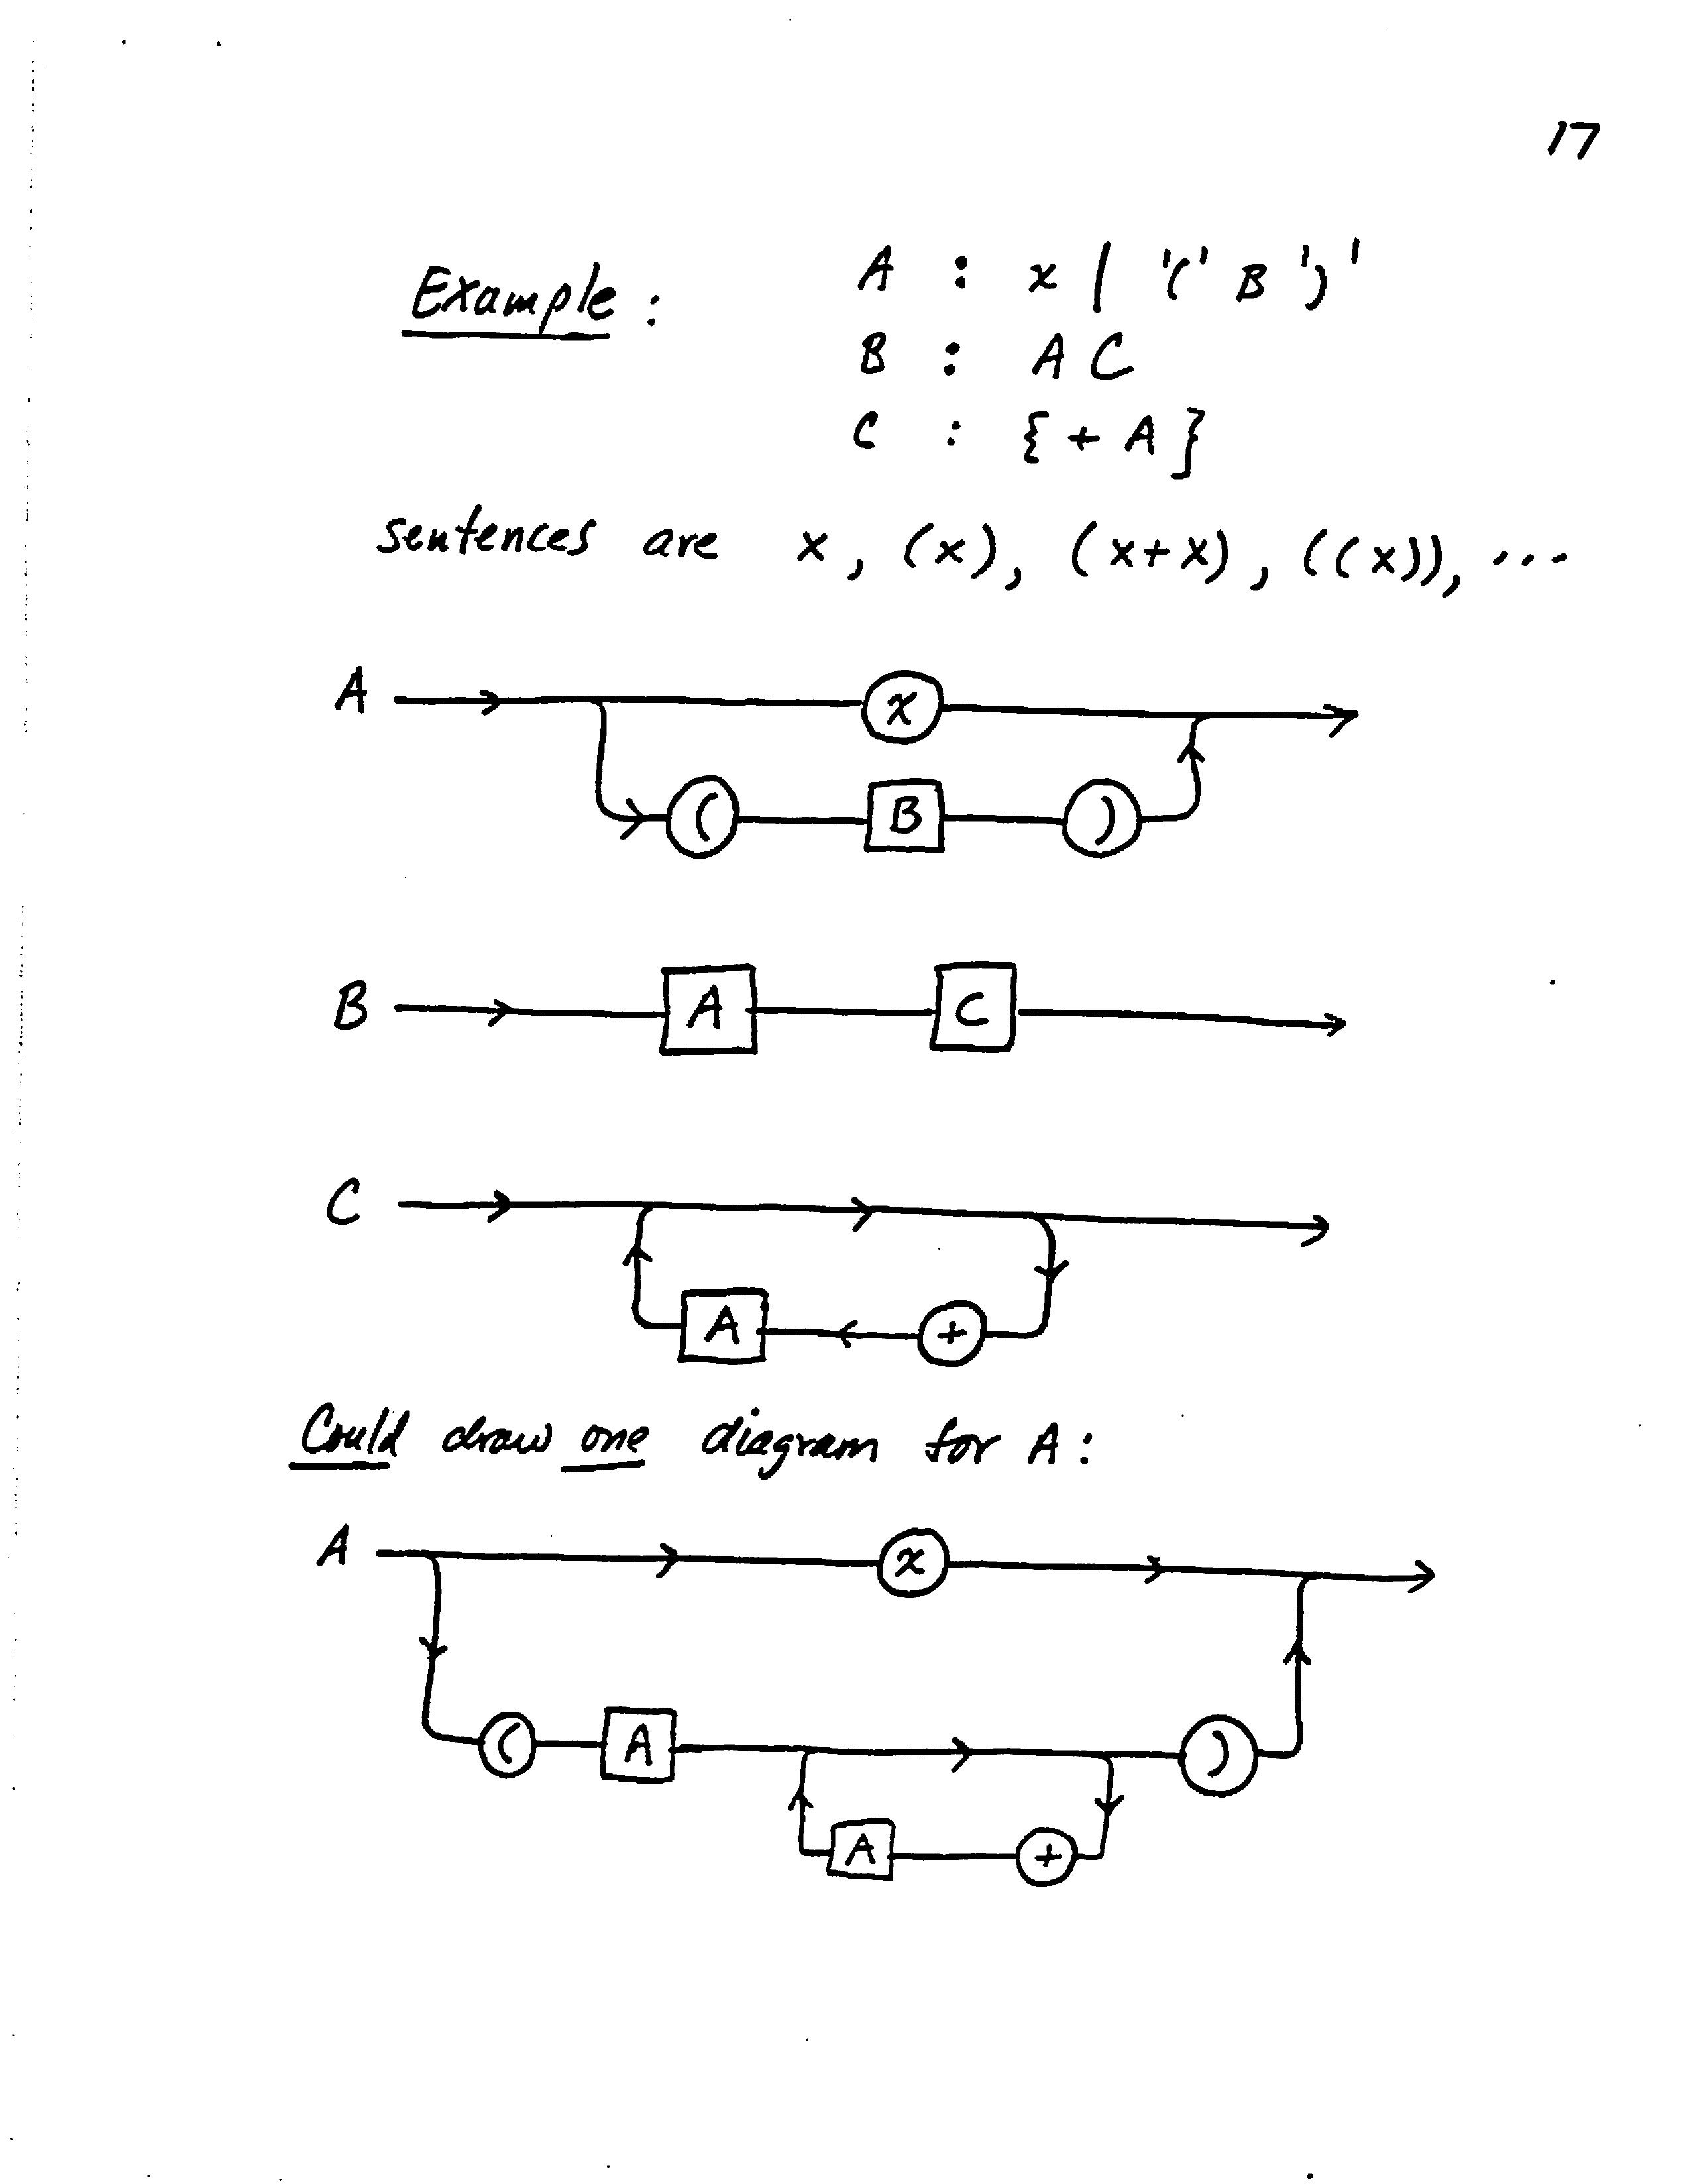 17
Example : A : x | '(' B ')'
B : A C
C : { + A }
sentences are x, (x), (x+x), ((x)), ...
A x
( B )
B A C
C
A +
Could draw one diagram for A :
A x
( A )
A +